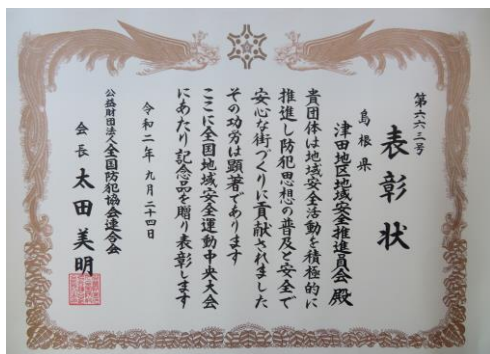 第六六三号
表彰状
島根県
津田地区地域安全推進員会殿
貴団体は地域安全活動を積極的に
推進し防犯思想の普及と安全で
安心な街づくりに貢献されました
その功労は顕著であります
ここに全国地域安全運動中央大会
にあたり記念品を贈り表彰します
令和二年九月二十四日
公益財団法人全国防犯協会連合会
会長太田美明